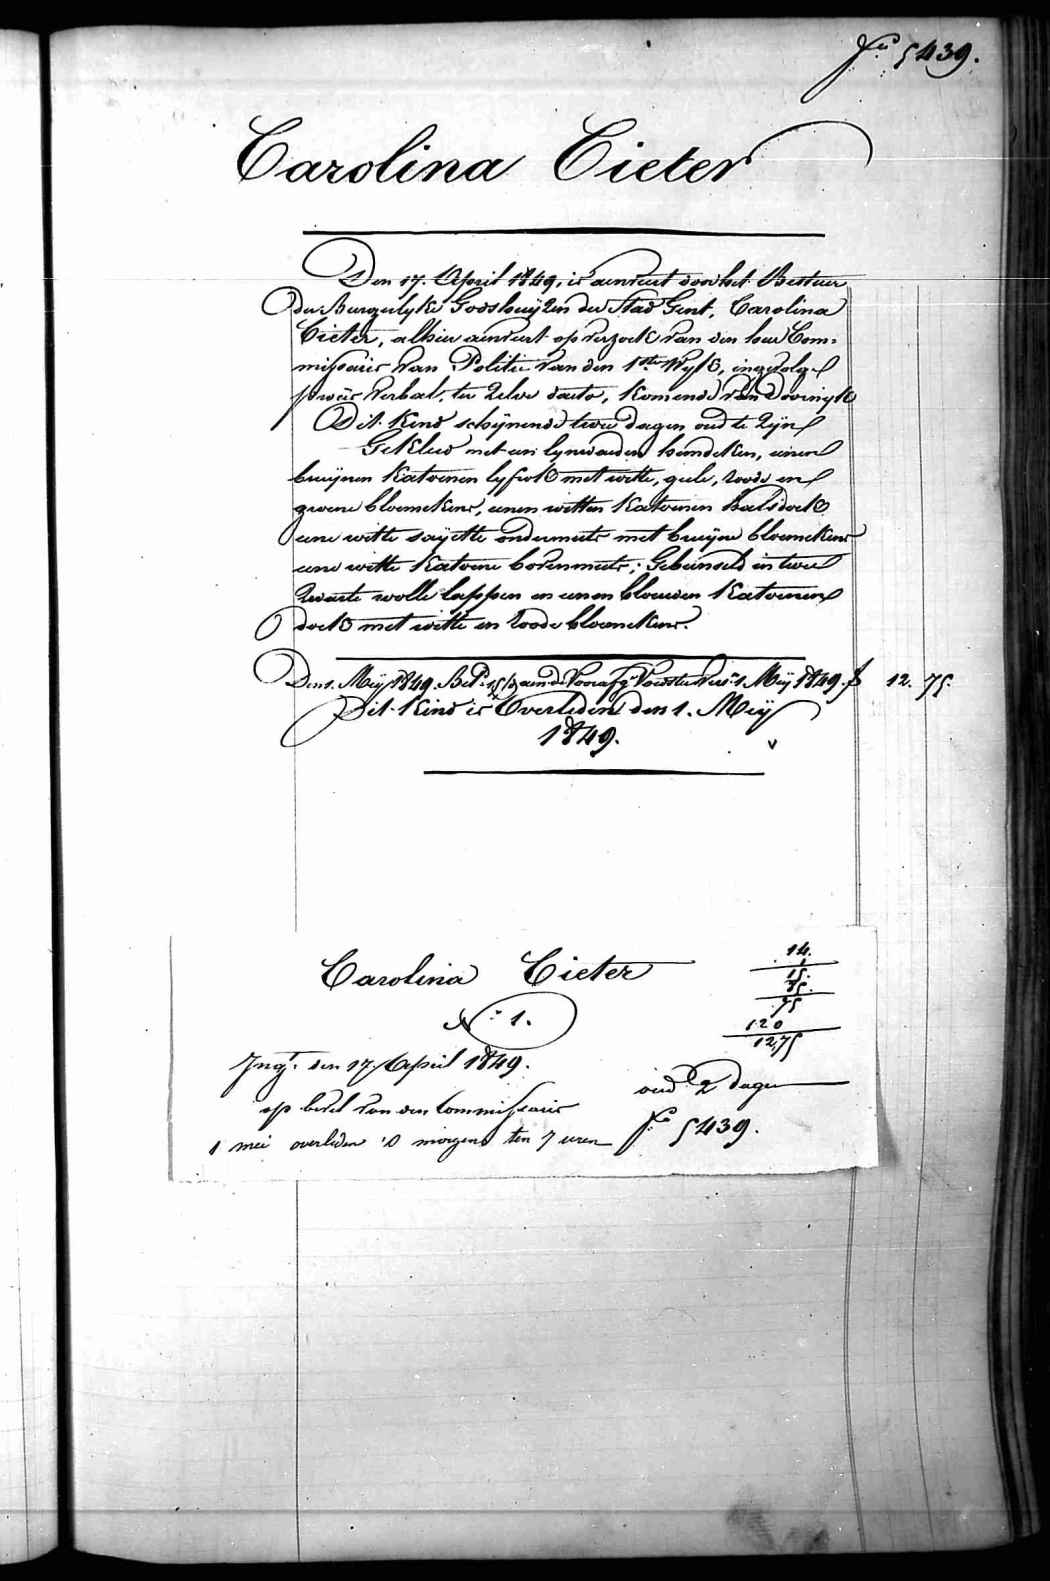 fo 5439.
Carolina Cieter
Den 17. April 1849, is aenveert door het Bestuer
der Burgerlyke Godshuyzen der Stad Gent, Carolina
Cieter, alhier aenveert op verzoek van den heer Com-
missaris van Politie van den 1ste Wyk, ingevolge
procès verbal, ter zelve daeto, komende van
Dit Kind schynende twee dagen oud te zyn
Gekleed met een lynwaeden hemdeken, eenen
bruynen katoenen lyfrok met witte, geele, roode en
groene bloemekens, eenen witten katoenen halsdoek
eene witte sayette ondermuts met bruyne bloemekens
eene witte katoene bovenmuts; Gebunseld in twee
zwarte wolle lappen en eenen blauwen katoenen
doek met witte en roode bloemekens.
Den 1. Mey 1849. Bet. 15/ aen de Voorafg Voedster tot 1. Mey 1849. f 12. 75.
Dit Kind is Overleden den 1. Mey
1849.
Carolina Cieter
No 1.
14.
1
15.
85.
75
120
12,75
Ing. den 17. April 1849.
oud 2 dagen
op bevel van den Commissaris
fo 5439.
1 mei overleden 's morgens ten 7 uren